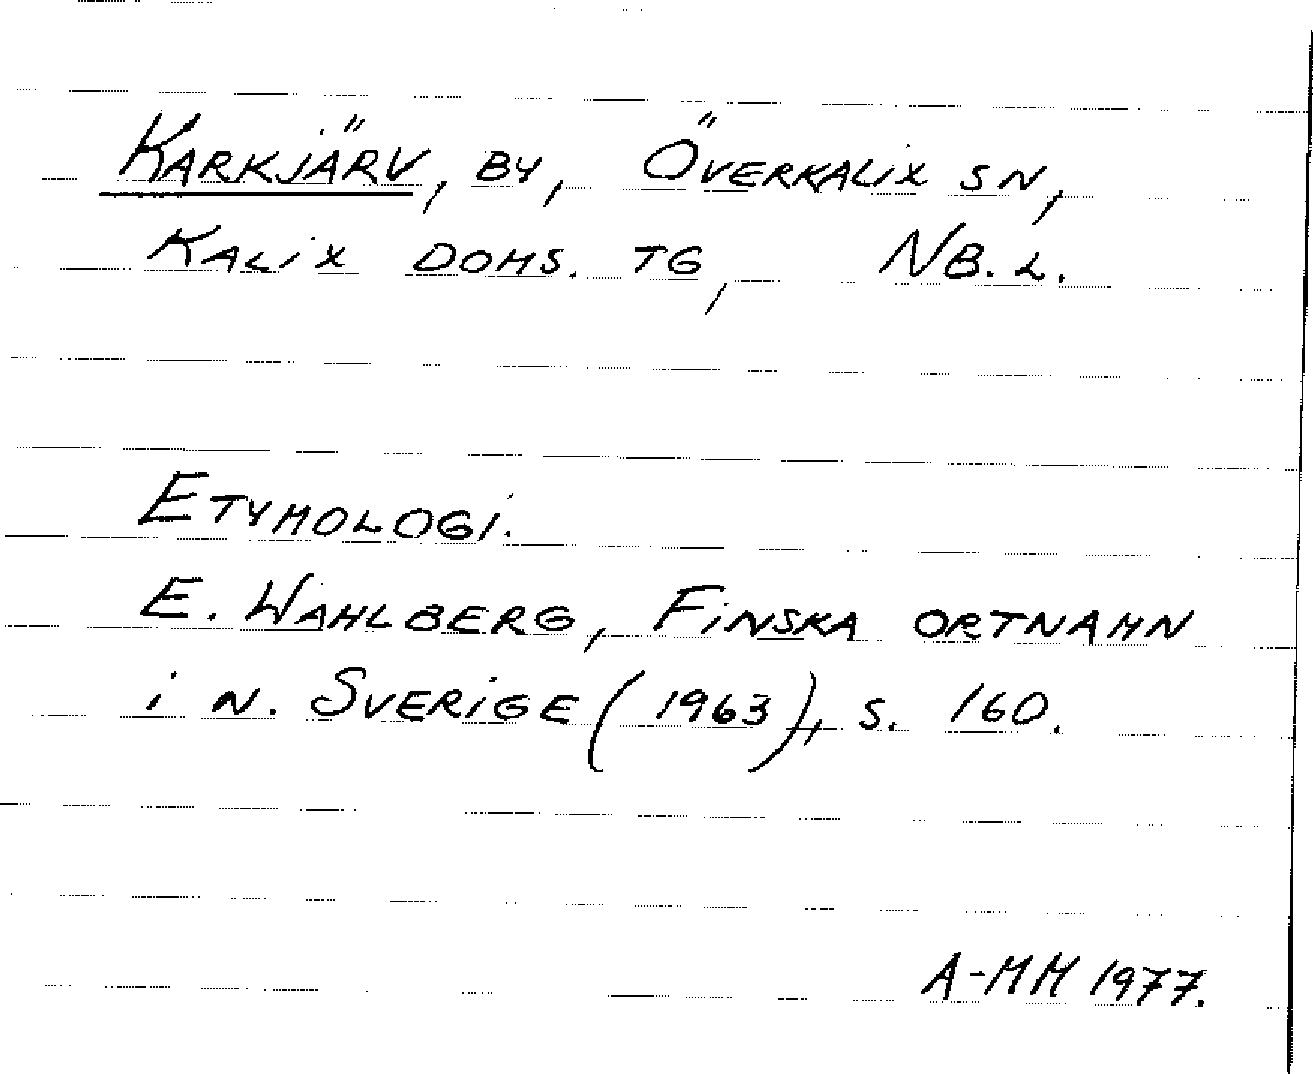 KARKJÄRV, BY, ÖVERKALIX SN,
KALIX DOMS. TG, NB. L.
ETYMOLOGI.
E. WAHLBERG, FINSKA ORTNAMN
I N. SVERIGE (1963), S. 160.
A-MM 1977.